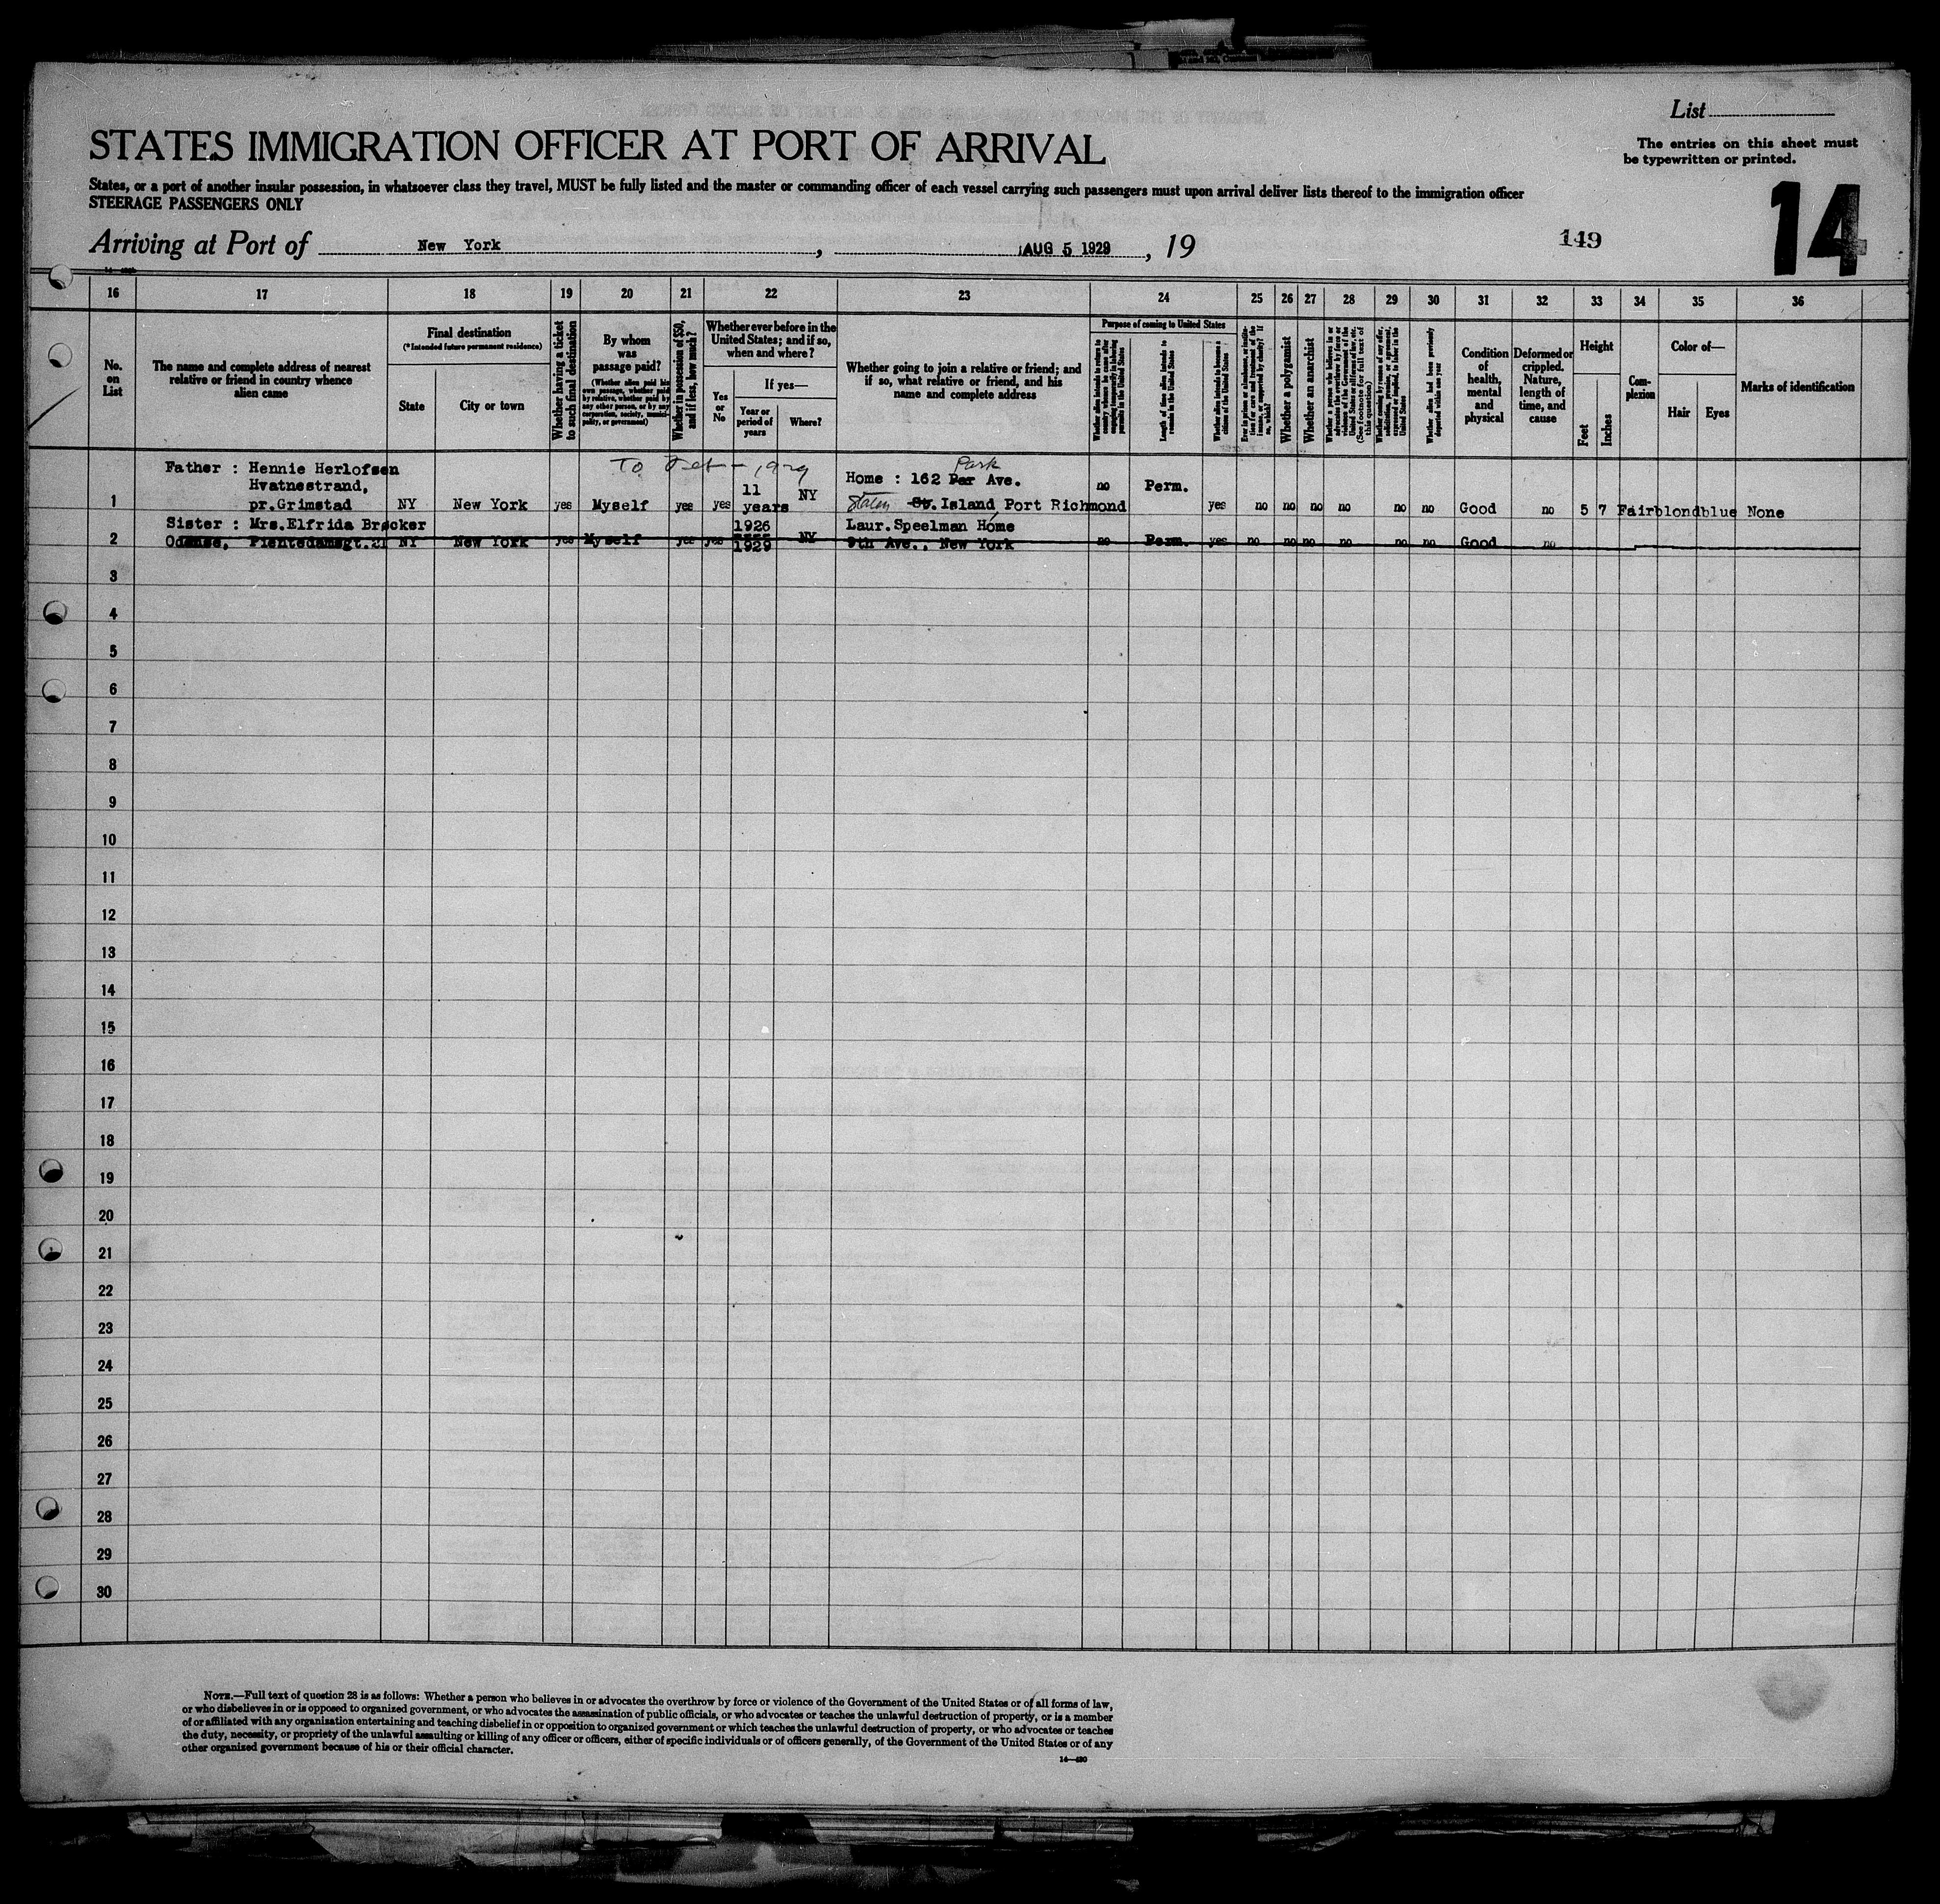 List
STATES IMMIGRATION OFFICER AT PORT OF ARRIVAL
The entries on this sheet must
be typewritten or printed.
States, or a port of another insular possession, in whatsoever class they travel, MUST be fully listed and the master or commanding officer of each vessel carrying such passengers must upon arrival deliver lists thereof to the immigration officer
STEERAGE PASSENGERS ONLY
14
Arriving at Port of New York, AUG 5 1929, 19
149
16 17 18 19 20 21 22 23 24 25 26 27 28 29 30 31 32 33 34 35 36
No. on List
The name and complete address of nearest relative or friend in country whence alien came
Final destination
(*Intended future permanent residence)
State
City or town
Whether having a ticket to such final destination
By whom was passage paid?
(Whether alien paid his own passage, whether paid by relative, whether paid by any other person, or by any corporation, society, municipality, or government)
Whether in possession of $50, and if less, how much?
Whether ever before in the United States; and if so, when and where?
Yes or No
If yes—
Year or period of years
Where?
Whether going to join a relative or friend; and if so, what relative or friend, and his name and complete address
Purpose of coming to United States
Length of time alien intends to remain in the United States
Whether alien intends to become a citizen of the United States
Whether a polygamist
Whether an anarchist
Whether alien had been previously deported within one year
Condition of health, mental and physical
Deformed or crippled. Nature, length of time, and cause
Height
Feet
Inches
Complexion
Color of—
Hair
Eyes
Marks of identification
To 1929
Park
Father : Hennie Herlofsen
Hvatnestrand, 11 NY Home : 162 Par Ave. no Perm.
1 pr.Grimstad NY New York yes Myself yes yes years Staten St. Island Port Richmond yes no no no no no no Good no 5 7 Fair blond blue None
Sister : Mrs.Elfrida Brøcker 1926 Laur.Speelman Home
2 Odense, NY New York yes Myself yes yes 1929 NY 9th Ave., New York no Perm. yes no no no no no no Good no
3
4
5
6
7
8
9
10
11
12
13
14
15
16
17
18
19
20
21
22
23
24
25
26
27
28
29
30
NOTE.—Full text of question 28 is as follows: Whether a person who believes in or advocates the overthrow by force or violence of the Government of the United States or of all forms of law,
or who disbelieves in or is opposed to organized government, or who advocates the assassination of public officials, or who advocates or teaches the unlawful destruction of property, or is a member
of or affiliated with any organization entertaining and teaching disbelief in or opposition to organized government or which teaches the unlawful destruction of property, or who advocates or teaches
the duty, necessity, or propriety of the unlawful assaulting or killing of any officer or officers, either of specific individuals or of officers generally, of the Government of the United States or of any
other organized government because of his or their official character.